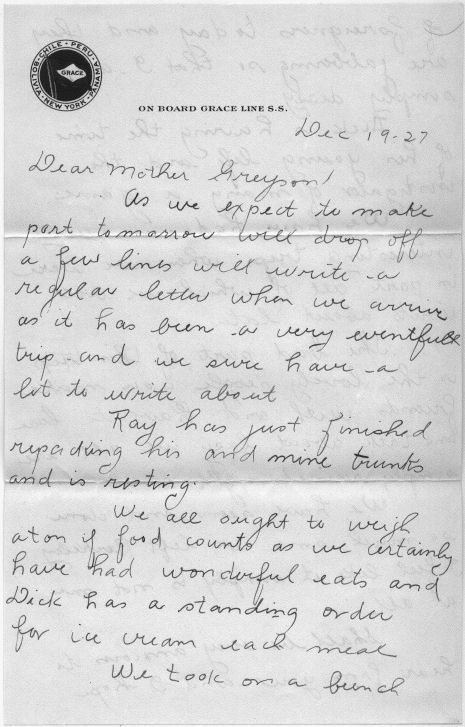 CHILE · PERU · PANAMA · NEW YORK · BOLIVIA
GRACE
ON BOARD GRACE LINE S.S.
Dec 19-27
Dear Mother Greyson!
As we expect to make
port tomarrow will drop off
a few lines will write a
regular letter when we arrive
as it has been a very eventfull
trip and we sure have a
lot to write about
Ray has just finished
repacking his and mine trunks
and is resting.
We all ought to weigh
aton if food counts as we certainly
have had wonderful eats and
Dick has a standing order
for ice cream each meal
We took on a bunch